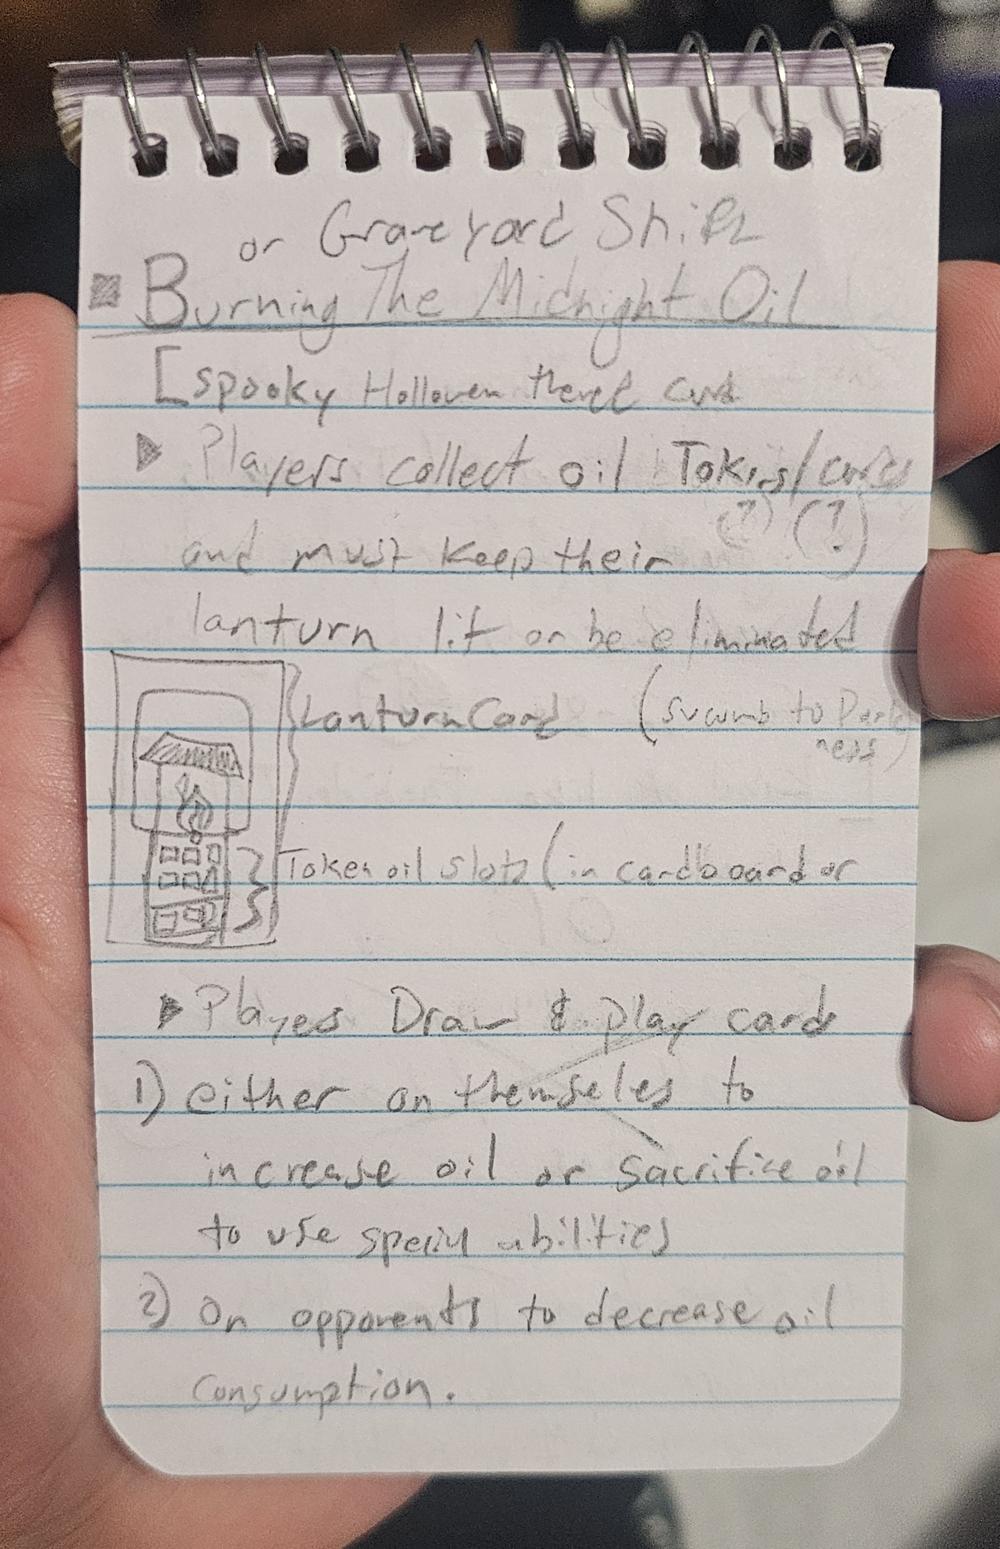 or Graveyard Shift
Burning The Midnight Oil
[spooky Holloven themed card
Players collect oil Tokens/cards
(?) (?)
and must keep their
lanturn lit or be eliminated
Lanturn Card (sucumb to Dark
ness)
Token oil slots (in cardboard or
Players Draw & play cards
1) either on themseles to
increase oil or sacrifice oil
to use special abilities
2) On opponents to decrease oil
consumption.